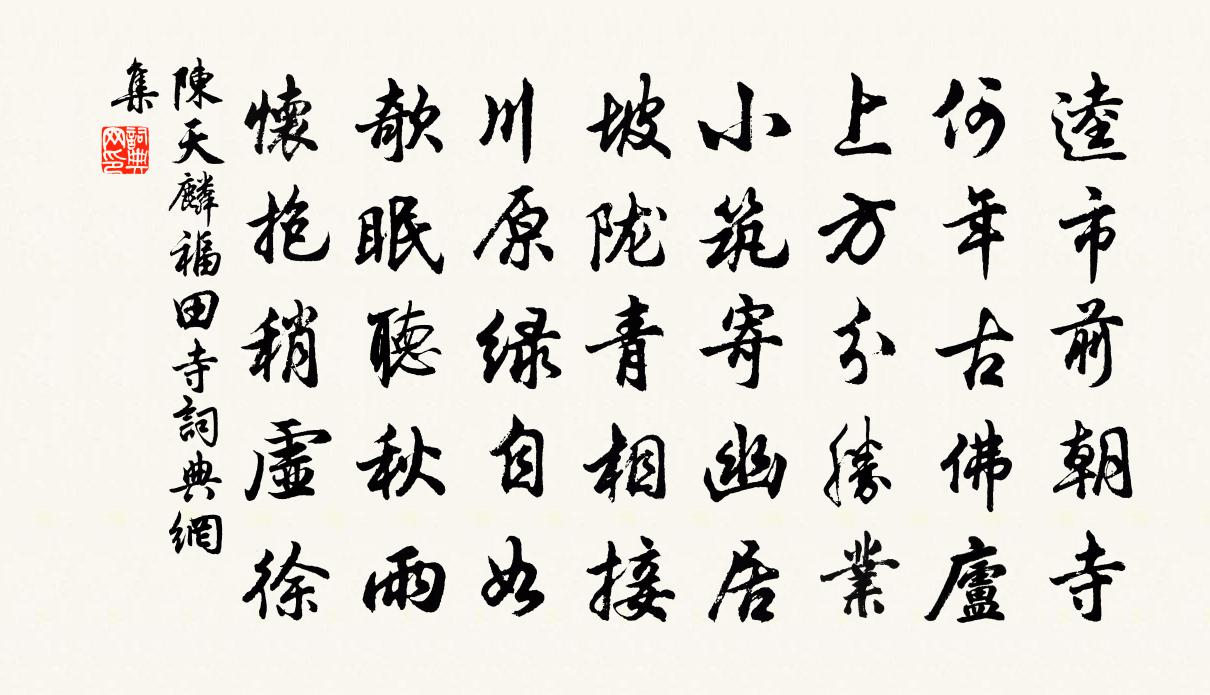 逵市前朝寺
何年古佛廬
上方分勝業
小筑寄幽居
坡陇青相接
川原绿自如
欹眠聽秋雨
懷抱稍虛徐
陳天麟福田寺詞典網
集
詞典网印